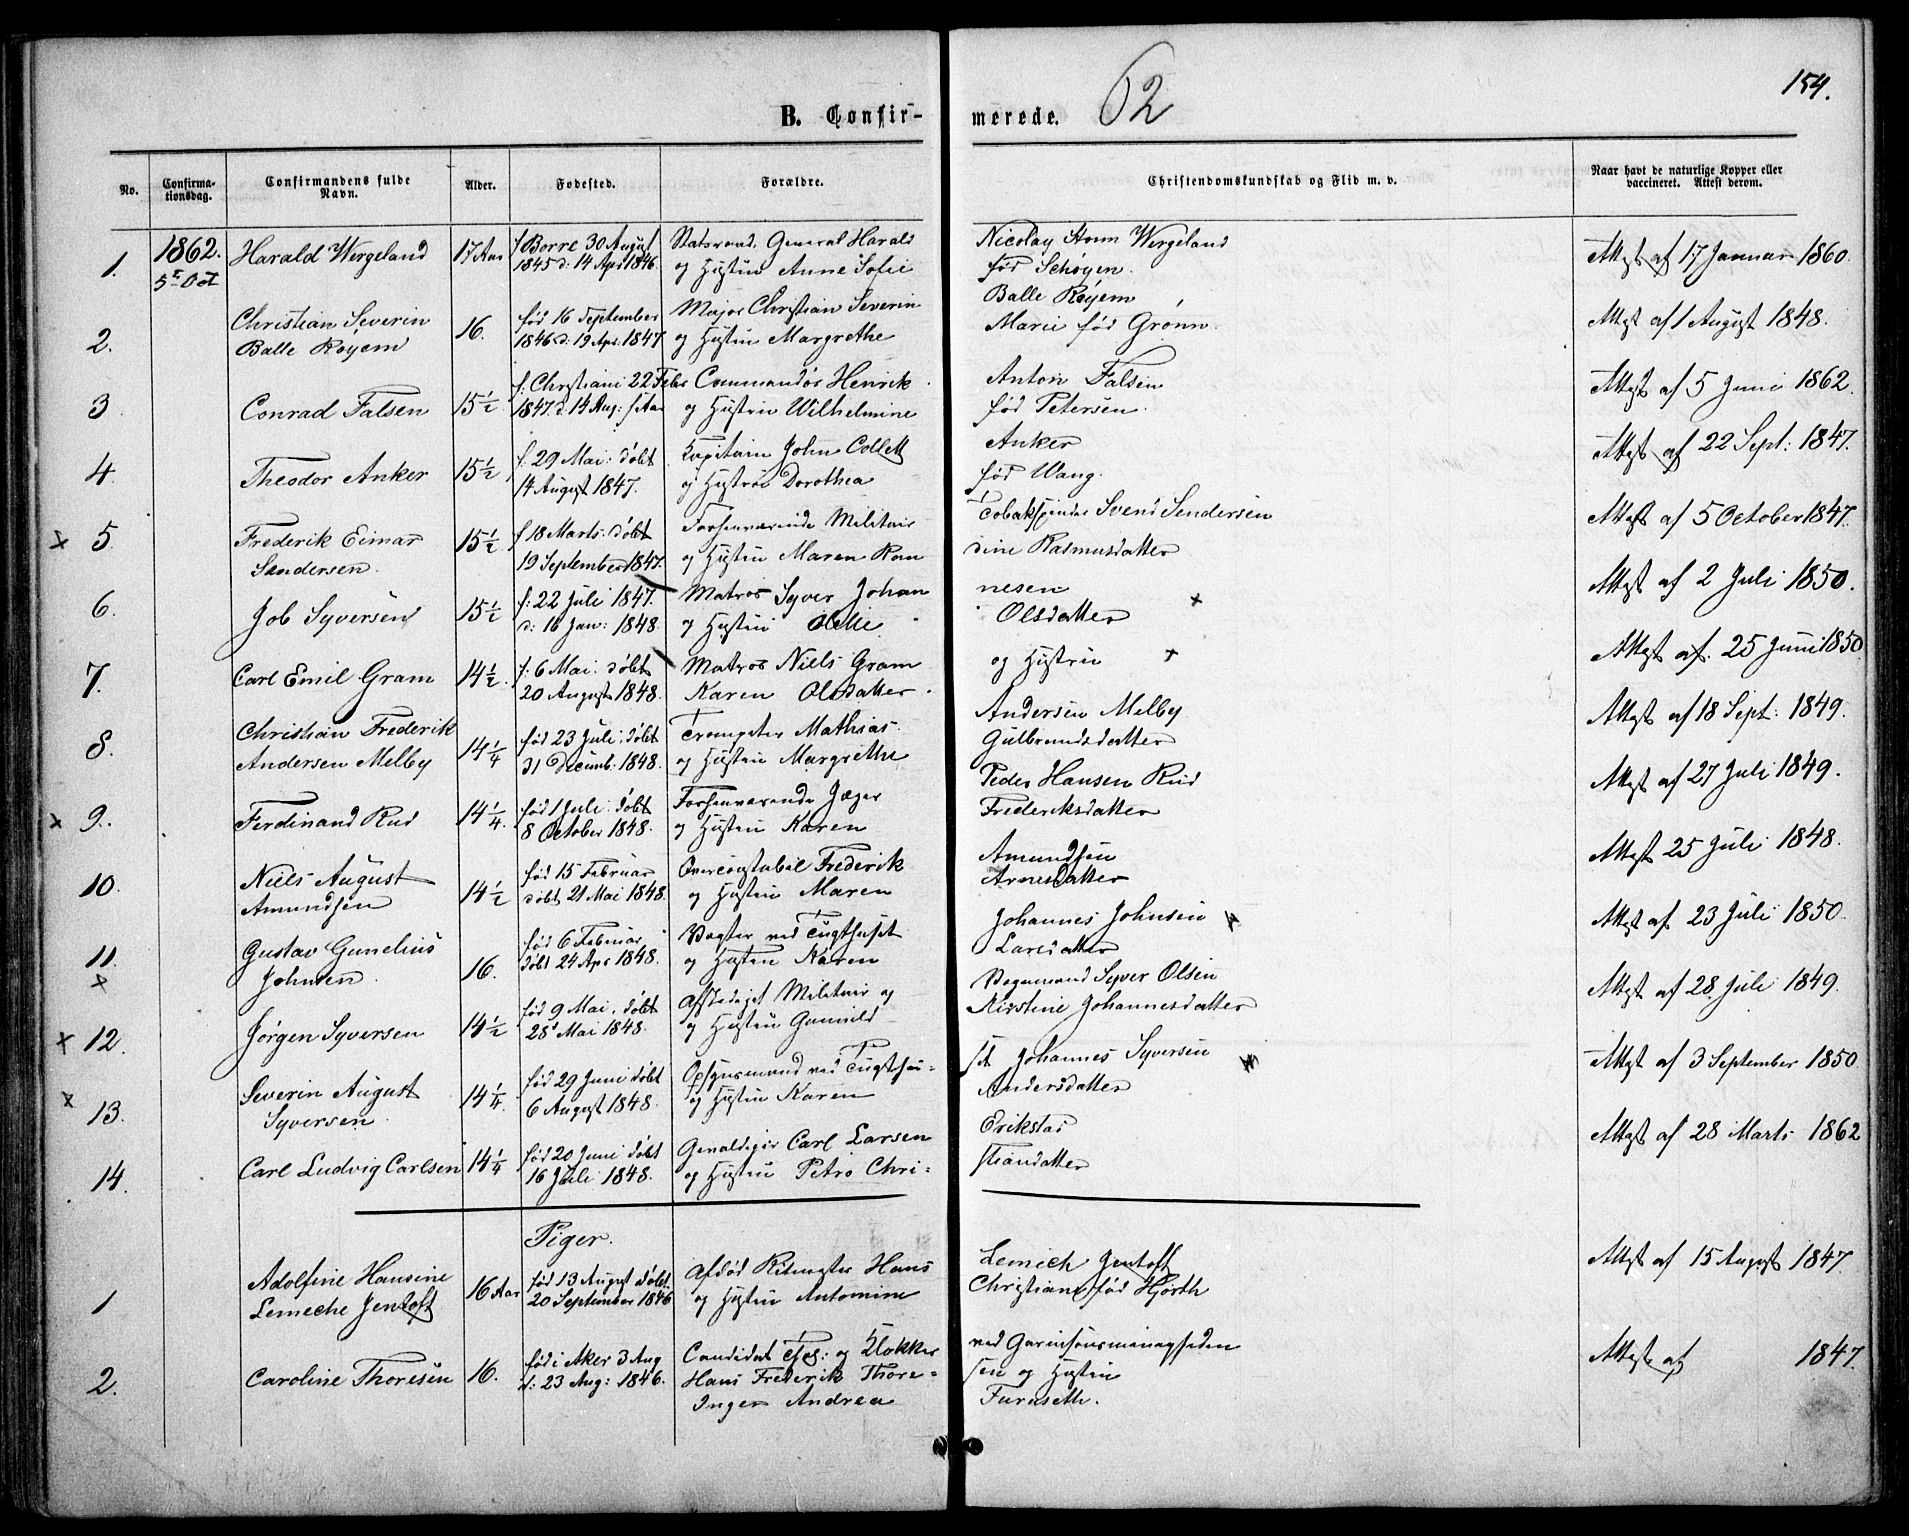 154.
B. Confir-
merede. 62
No. Confirma-tionsdag. Confirmandens fulde Navn. Alder. Fødested. Forældre. Christendomskundskab og Flid m. v. Naar havt de naturlige Kopper eller vaccineret. Attest derom.
1. 1862. Harald Wergeland 17 Aar f. Borre 30 August Statsraad, General Harald Nicolay Storm Wergeland Attest af 17 Januar 1860.
5te Oct 1845 d: 14 Apr 1846. og Hustru Anne Sofie født Schøyen.
Christian Severin født 16 September Major Christian Severin Balle Røyem Attest af 1 August 1848.
2. Balle Røyem 16. 1846 d: 19 Apr. 1847 og Hustru Margrethe Marie født Grønn.
f. Christiani 22 Febr Commandør Henrik Anton Falsen Attest af 5 Juni 1862.
3 Conrad Falsen 15 1/2 1847. d. 14 Aug. s. Aar og Hustru Wilhelmine født Petersen.
f. 29 Mai: døbt Kapitain John Collett Anker Attest af 22 Sept: 1847.
4. Theodor Anker 15 1/2 14 August 1847. og Hustru Dorothea født Wang.
x 5. Frederik Eimar 15 1/2 f 18 Marts: døbt Forhenværende Militair Tobakspinder Svend Sendersen Attest af 5 October 1847.
Sendersen. 19 September 1847. og Hustru Maren Ran dine Rasmusdatter
6. Job Syversen 15 1/2 f: 22 Juli 1847. Matros Syver Johan nesen x Attest af 2 Juli 1850.
d: 16 Jan: 1848 og Hustru Olette Olsdatter
7. Carl Emil Gram 14 1/2 f: 6 Mai: døbt Matros Niels Gram og Hustru x Attest af. 25 Juni 1850.
20 August 1848. Karen Olsdatter.
8. Christian Frederik 14 1/4 født 23 Juli: døbt Trompeter Mathias Andersen Melby Attest af 18 Sept: 1849.
Andersen Melby 31 Decemb. 1848. og Hustru Margrethe Gulbrandsdatter
x 9. Ferdinand Rud 14 1/4. født 1 Juli: døbt Forhenværende Jæger Peder Hansen Rud Attest af 27 Juli 1849.
8 October 1848. og Hustru Karen Frederiksdatter
10. Niels August 14 1/2 født 15 Februar Overconstabel Frederik Amundsen Attest 25 Juli 1848.
Amundsen døbt 21 Mai 1848. og Hustru Maren Arnesdatter
11. Gustav Gunelius 16. født 6 Februar Vægter ved Tugthuset Johannes Johnsen x Attest af 23 Juli 1850.
x Johnsen. døbt 24 Apr 1848. og Hustru Karen Larsdatter
x 12. Jørgen Syversen 14 1/2 født 9 Mai. døbt Afskediget Militair og Vognmand Syver Olsen Attest af 28 Juli 1849.
28 Mai 1848. og Hustru Gunnild Kirstine Johannesdatter
x 13. Severin August 14 1/4. født 29 Juni døbt Opsynsmand ved Tugthu- set Johannes Syversen x Attest af 3 September 1850.
Syversen. 6 August 1848. og Hustru Karen Andersdatter
14. Carl Ludvig Carlsen 14 1/4 født 20 Juni døbt Gevaldiger Carl Larsen Erikstad Attest af 28 Marts 1862
16 Juli 1848. og Hustru Petra Chri= stiansdatter
Piger.
1 Adolfine Hansine 16 Aar født 13 August døbt Afdød Ritmester Hans Lemich Jentoft Attest af 15 August 1847.
Lemeche Jentoft 20 September 1846 og Hustru Antomine Christiane født Hjorth
2. Caroline Thoresen 16. født i Aker 3 Aug Candidat Theol: og Klokker ved Garnisonsmenigheden Attest af 1847.
d: 23 Aug: 1846. Hans Frederik Thore= sen og Hustru
Inger Andrea Furuseth.